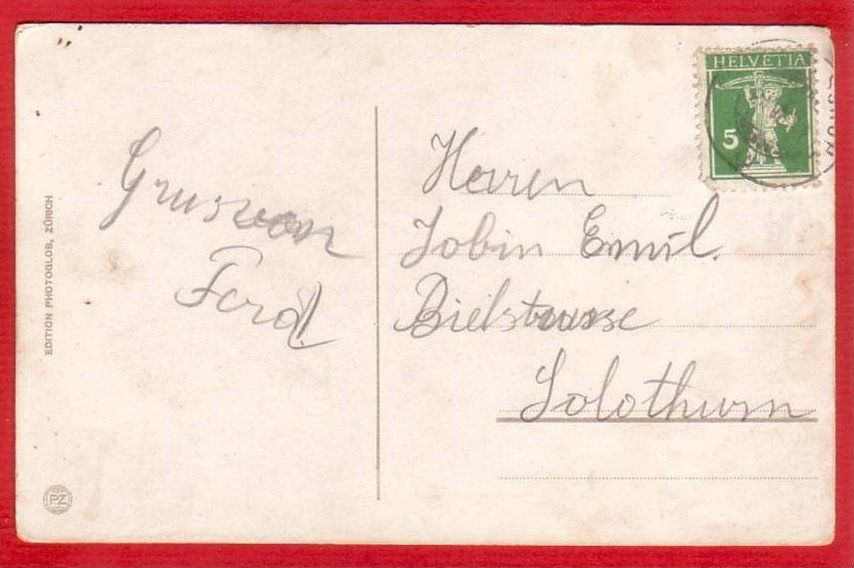 Gruss von
Ferd
Herren
Jobin Emil.
Bielstrasse
Solothurn
HELVETIA
5
EDITION PHOTOGLOB, ZÜRICH
PZ